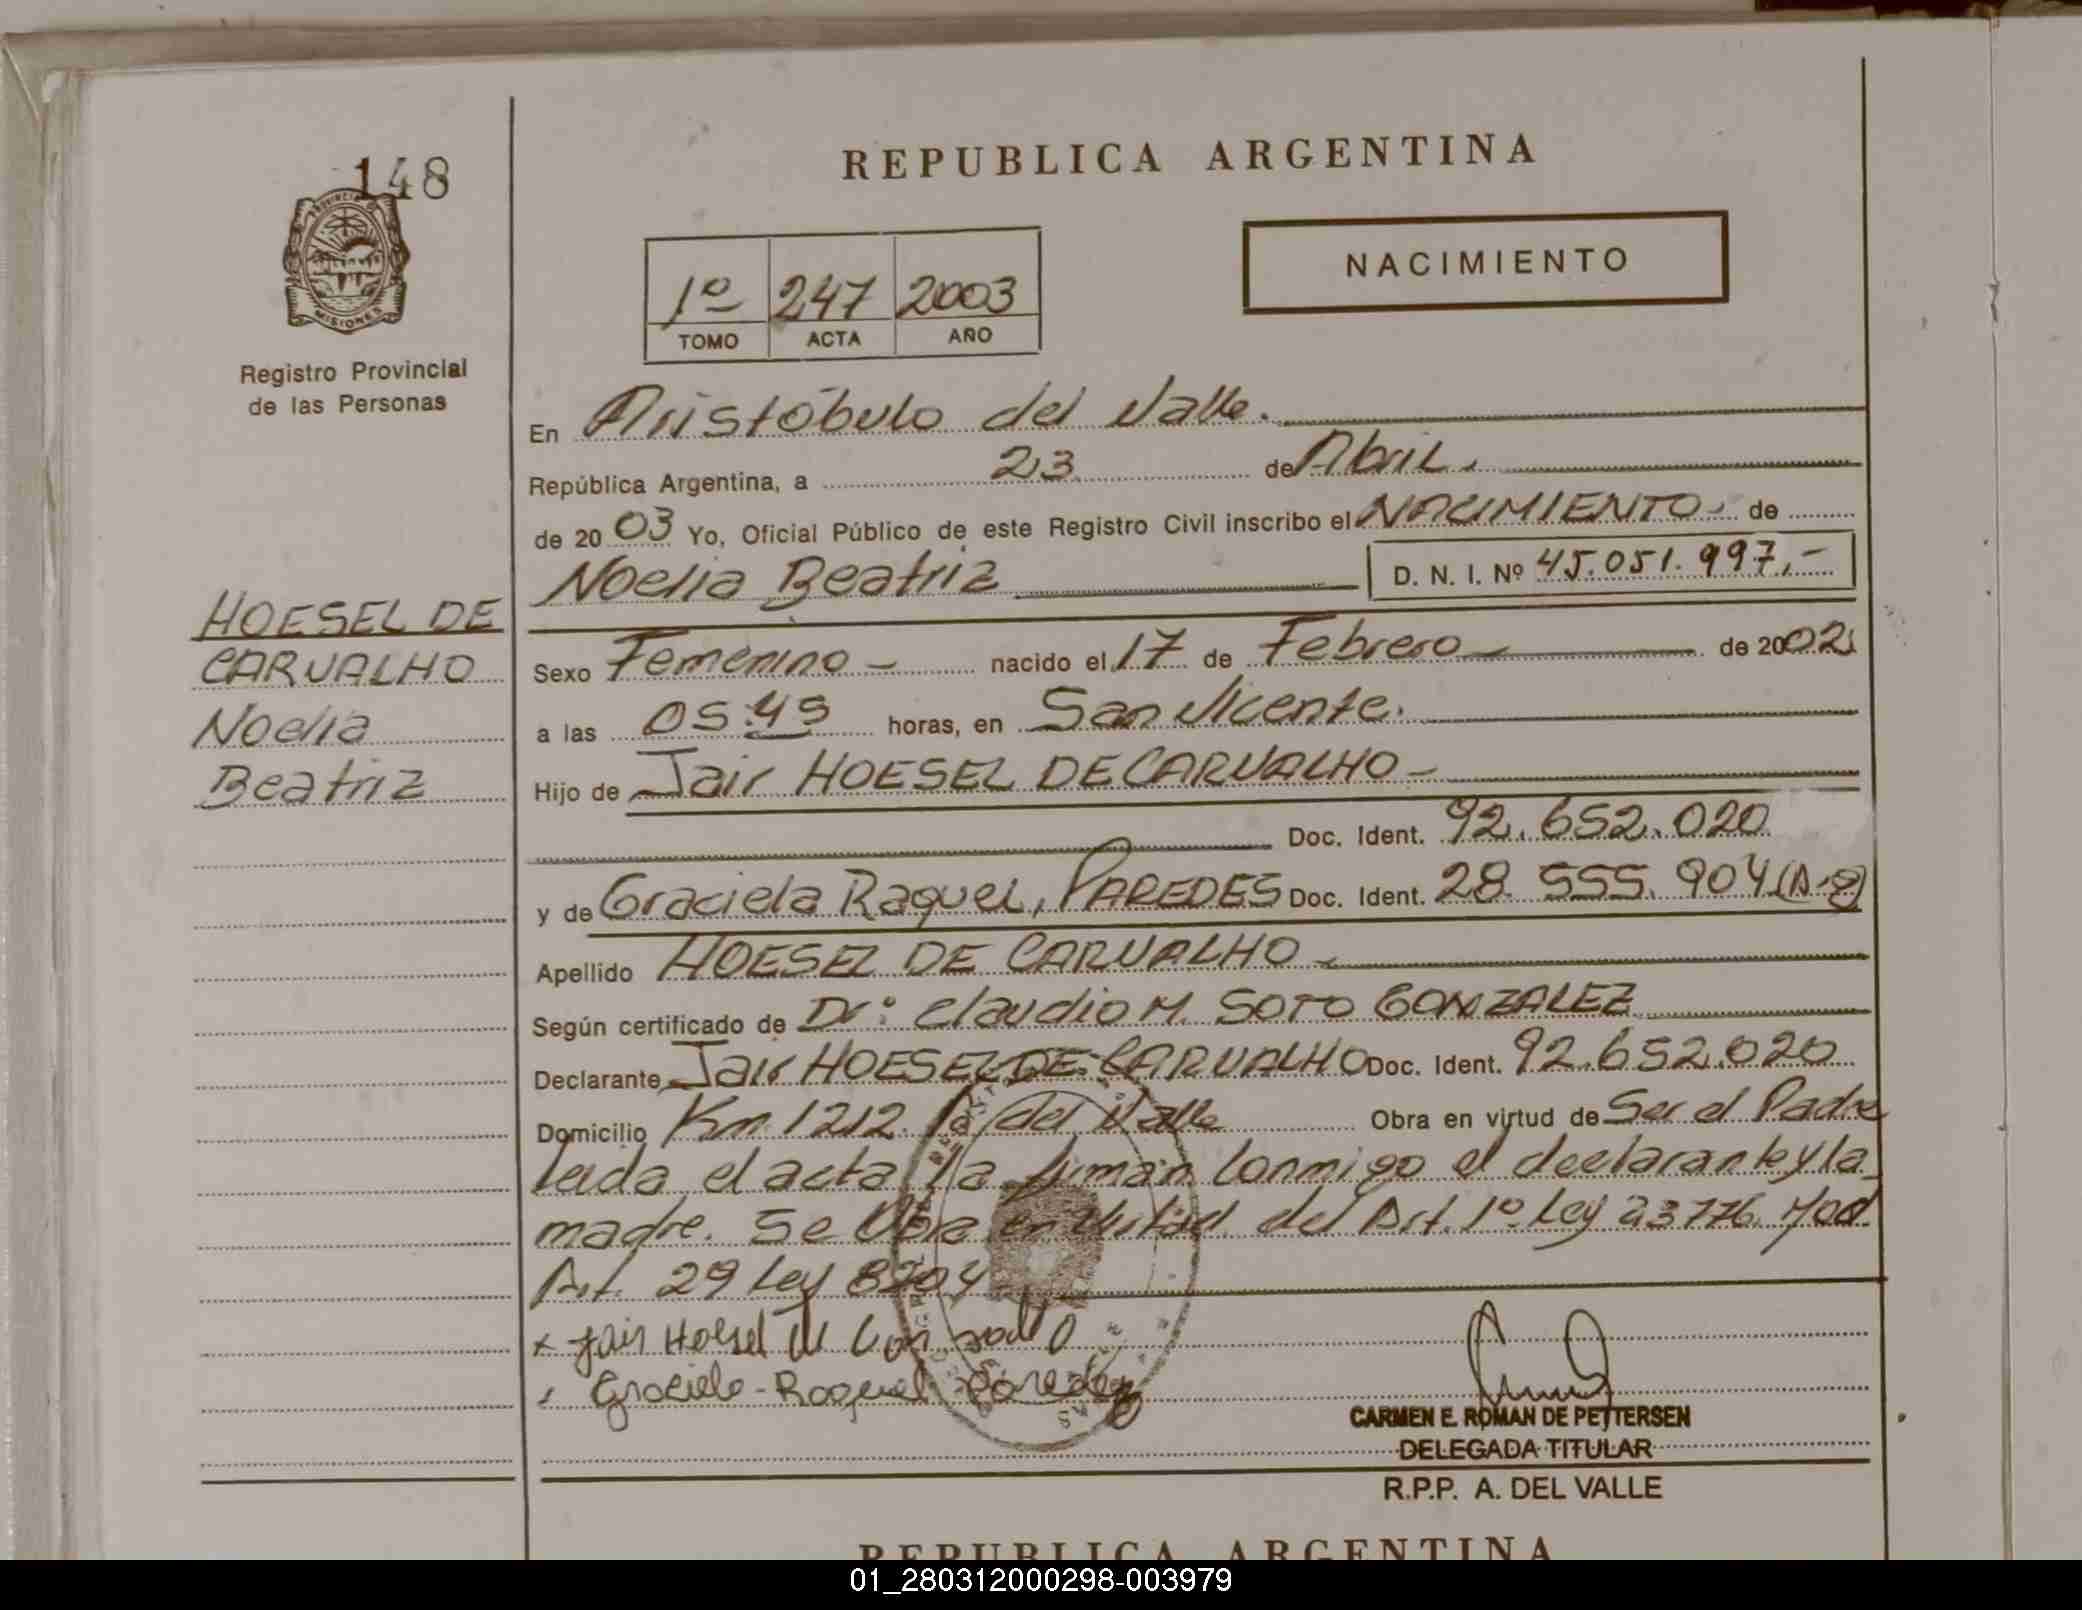 148
PROVINCIA
MISIONES
Registro Provincial
de las Personas
REPUBLICA ARGENTINA
NACIMIENTO
1º 247 2003
TOMO ACTA AÑO
En Aristóbulo del Valle.
República Argentina, a 23 de Abril.
de 2003 Yo, Oficial Público de este Registro Civil inscribo el NACIMIENTO de
Noelia Beatriz D. N. I. Nº 45.051.997.-
HOESEL DE
CARVALHO
Noelia
Beatriz
Sexo Femenino - nacido el 17 de Febrero de 2002
a las 05:45 horas, en San Vicente.
Hijo de Jair HOESEL DE CARVALHO -
Doc. Ident. 92.652.020
y de Graciela Raquel, PAREDES Doc. Ident. 28.555.904
Apellido HOESEL DE CARVALHO
Según certificado de Dr: Claudio M. SOTO GONZALEZ
Declarante Jair HOESEL DE CARVALHO Doc. Ident. 92.652.020
Domicilio Km 1212. del Valle Obra en virtud de Ser el Padre
Leida el acta la firman Conmigo el declarante y la
madre. Se Obra en Virtud del Art. 1º Ley 23776 Mod
Art. 29 Ley 8204
x Jair Hoesel
Graciela - Raquel Paredez
CARMEN E. ROMAN DE PETTERSEN
DELEGADA TITULAR
R.P.P. A. DEL VALLE
REPUBLICA ARGENTINA
01_280312000298-003979